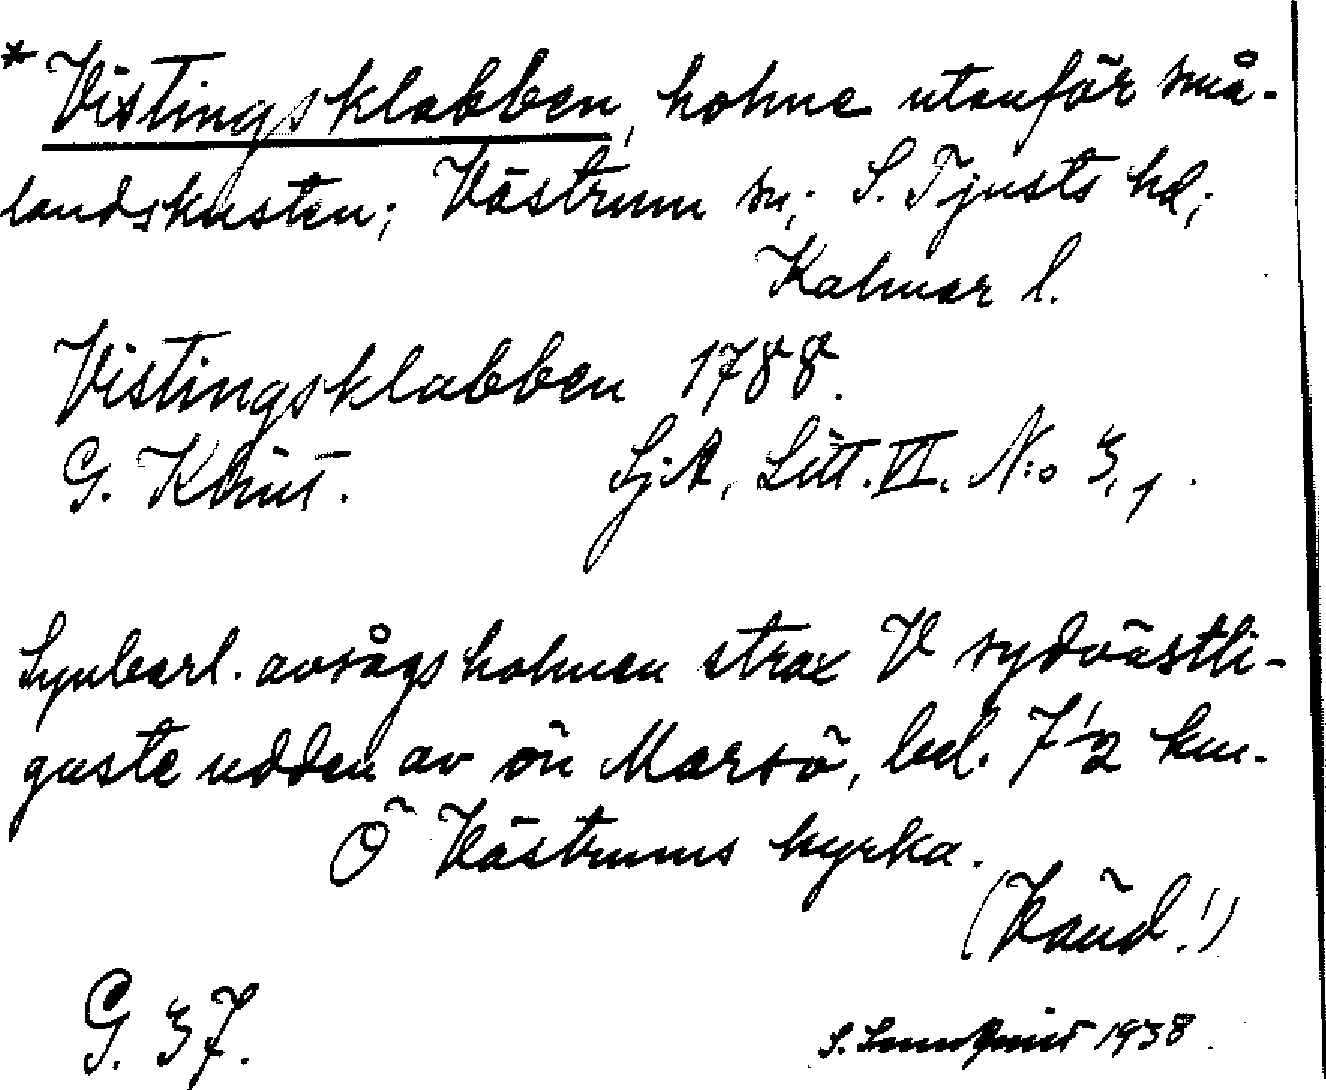 * Vistingsklabben, holme utanför små-
landskusten; Västrum sn; S. Tjusts hd;
Kalmar l.
Vistingsklabben 1788.
G. Klint. SjA, Litt. VI. N:o 3,1.
Synbarl. avsågs holmen strax V sydvästli-
gaste udden av ön Marsö, bel. 7 1/2 km.
Ö Västrums kyrka.
(Vänd!)
G. 37. 1938.